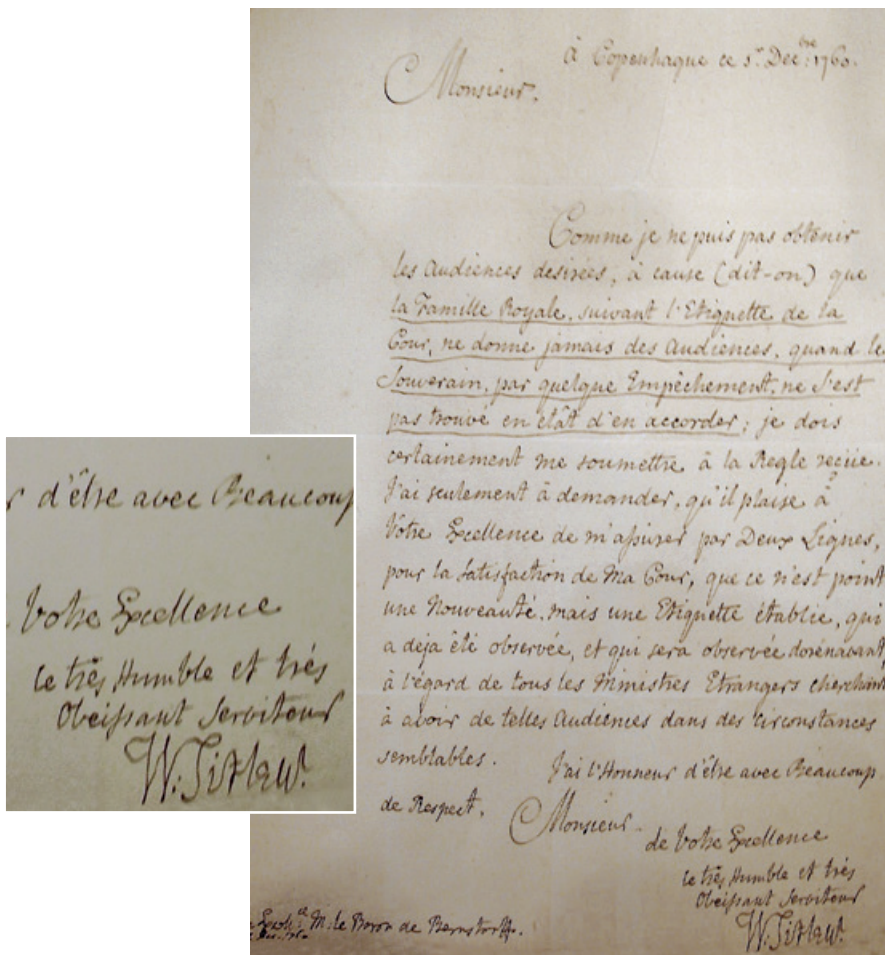 à Copenhague ce 5.e Dec.bre 1760.
Monsieur.
Comme je ne puis pas obtenir
les Audiences desirées, à cause (dit-on) que
la Famille Royale, suivant l'Etiquette de la
Cour, ne donne jamais des Audiences, quand le
Souverain, par quelque Empêchement, ne s'est
pas trouvé en êtât d'en accorder; je dois
certainement me soumettre à la Regle reçüe.
J'ai seulement à demander, qu'il plaise à
Votre Excellence de m'assurer par Deux Lignes,
pour la satisfaction de Ma Cour, que ce n'est point
une Nouveauté, mais une Etiquette êtablie, qui
a deja êté observée, et qui sera observée dorénavant,
à l'égard de tous les Ministres Etrangers cherchant
à avoir de telles Audiences dans des circonstances
semblables.
J'ai l'Honneur d'être avec Beaucoup
de Respect,
Monsieur.
de Votre Excellence
le très Humble et très
Obeissant Serviteur
W. Titley.
M. le Baron de Bernstorff.
r d'être avec Beaucoup
Votre Excellence
le très Humble et très
Obeissant Serviteur
W. Titley.